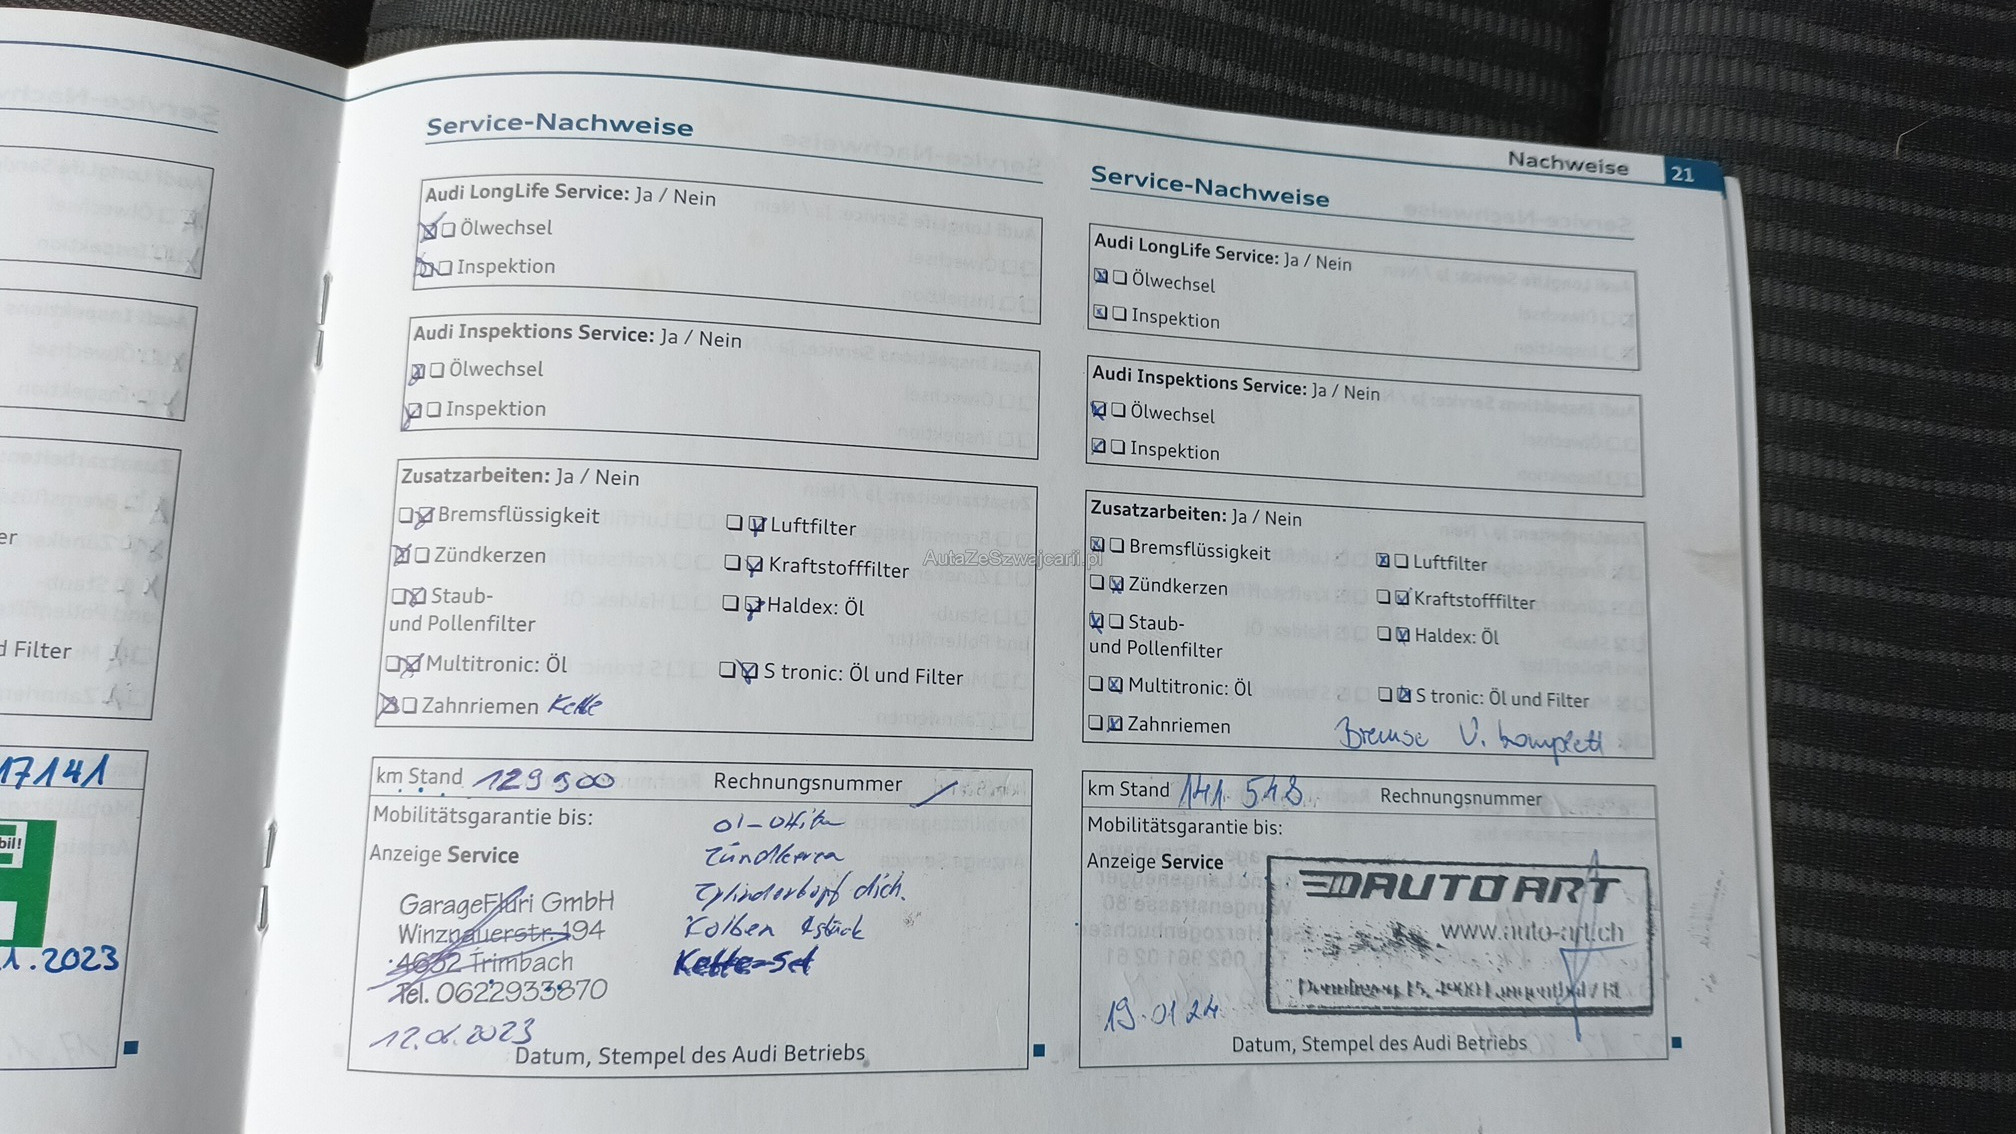 er
d Filter
17141
bil!
1.2023
Service-Nachweise
Audi LongLife Service: Ja / Nein
Ölwechsel
Inspektion
Audi Inspektions Service: Ja / Nein
Ölwechsel
Inspektion
Zusatzarbeiten: Ja / Nein
Bremsflüssigkeit
Luftfilter
Zündkerzen
Kraftstofffilter
Staub-
und Pollenfilter
Haldex: Öl
Multitronic: Öl
S tronic: Öl und Filter
Zahnriemen Kette
km Stand 129900 Rechnungsnummer
Mobilitätsgarantie bis:
Anzeige Service
Zündkerzen
Zylinderkopf dich.
Kolben 4 stück
Kette-Set
GarageFluri GmbH
Winznauerstr. 194
4632 Trimbach
Tel. 0622933870
12.06.2023
Datum, Stempel des Audi Betriebs
Nachweise 21
Service-Nachweise
Audi LongLife Service: Ja / Nein
Ölwechsel
Inspektion
Audi Inspektions Service: Ja / Nein
Ölwechsel
Inspektion
Zusatzarbeiten: Ja / Nein
Bremsflüssigkeit
Luftfilter
Zündkerzen
Kraftstofffilter
Staub-
und Pollenfilter
Haldex: Öl
Multitronic: Öl
S tronic: Öl und Filter
Zahnriemen
Bremse V. komplett
km Stand 141 548 Rechnungsnummer
Mobilitätsgarantie bis:
Anzeige Service
AUTO ART
www.auto-art.ch
19.01.24
Datum, Stempel des Audi Betriebs
AutaZeSzwajcarii.pl